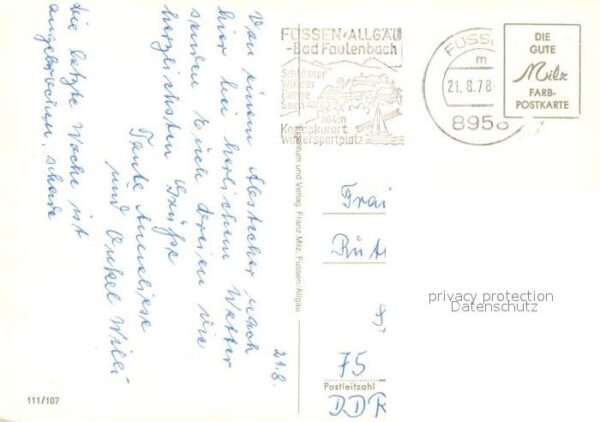 21.8.
Von einem Abstecher nach
hier bei herrlichem Wetter
senden Euch Dreien die
herzlichsten Grüße
Tante Anneliese
und Onkel Willi
Die letzte Woche ist
angebrochen, schade
111/107
Eigentum und Verlag: Franz Milz, Füssen/Allgäu
FÜSSEN·ALLGÄU
-Bad Faulenbach
Schlösser
Wälder
Berge
Seen
800 - m
Kneippkurort
Wintersportplatz
FÜSS
m
21.8.78
8958
DIE
GUTE
Milz
FARB-
POSTKARTE
75
Postleitzahl
DDR
privacy protection
Datenschutz